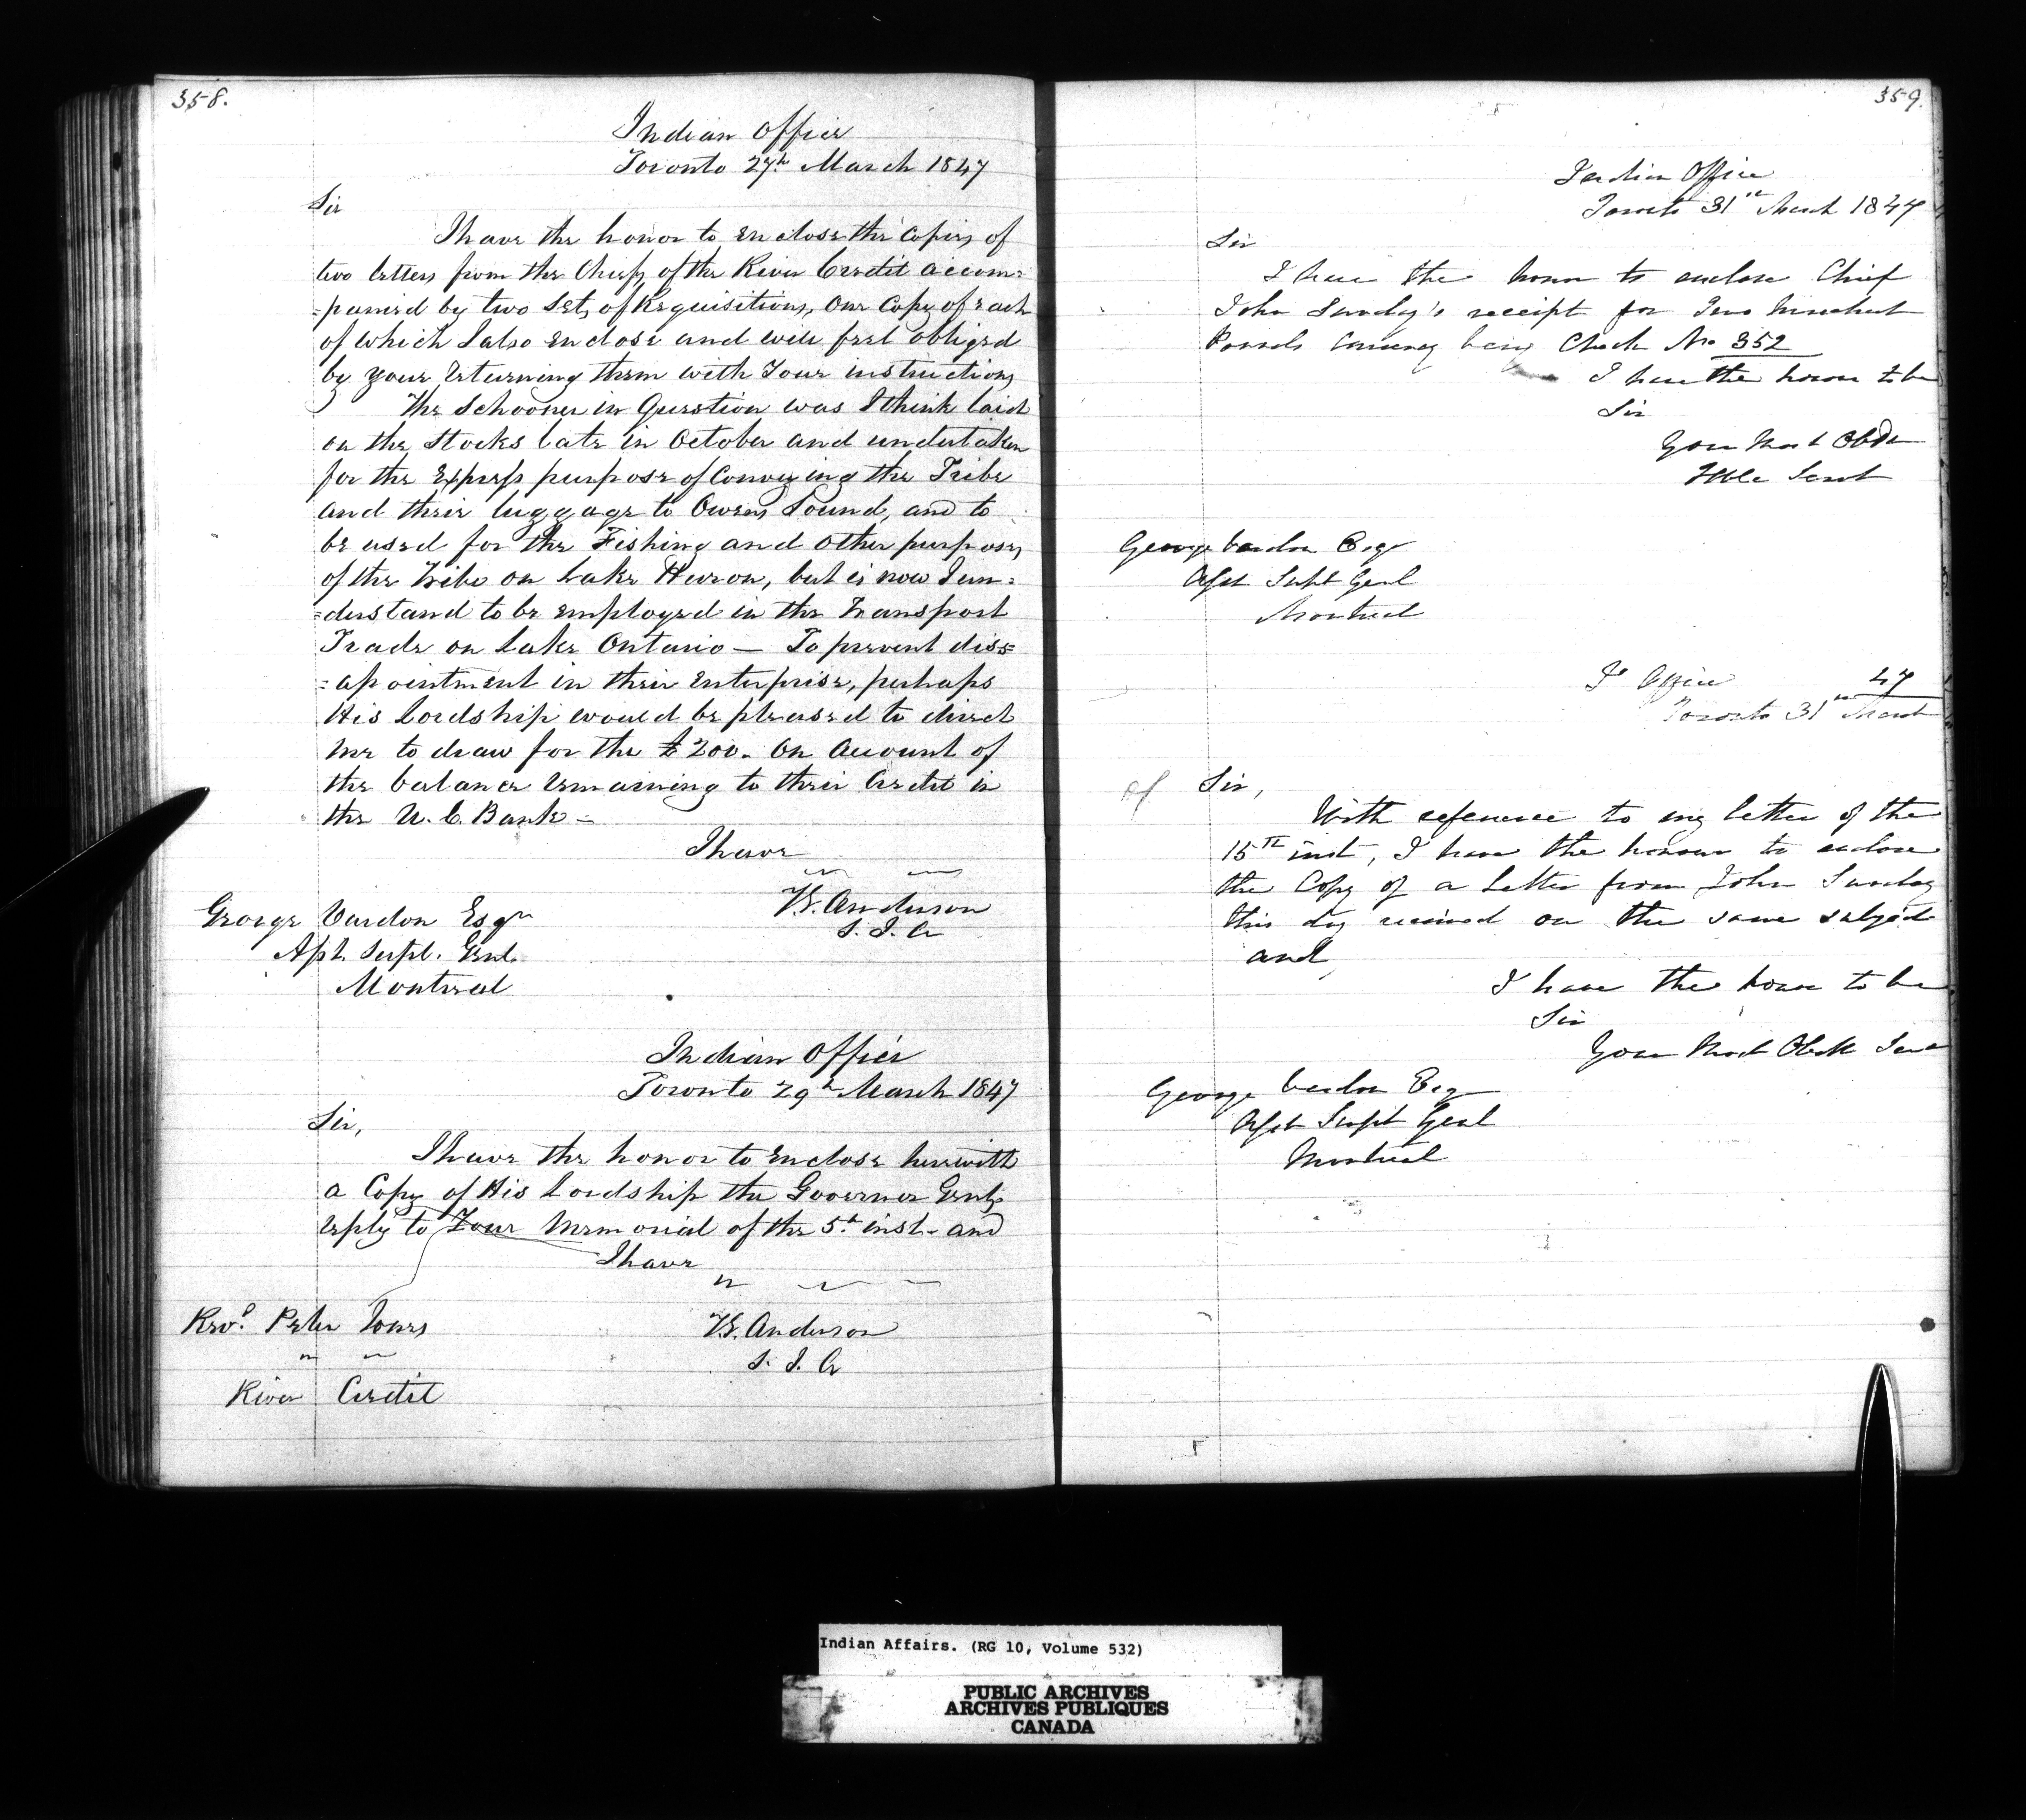 358.
Indian Office
Toronto 27th March 1847
Sir
I have the honor to enclose the copies of
two letters from the Chiefs of the River Credit accom=
=panied by two sets of Requisitions, one Copy of each
of which I also enclose and will feel obliged
by your returning them with Your instructions
The Schooner in Question was I think laid
on the Stocks late in October and undertaken
for the Express purpose of Conveying the Tribe
and their luggage to Owens Sound, and to
be used for the Fishing and other purposes
of the Tribe on Lake Huron, but is now I un=
=derstand to be employed in the Transport
Trade on Lake Ontario — To prevent diss=
=apointment in their Enterprise, perhaps
His Lordship would be pleased to direct
me to draw for the £200. on account of
the balance remaining to their Credit in
the U. C. Bank —
I have
" "
T.G. Anderson
S. I. A
George Vardon Esqr
Asst. Supt. Genl.
Montreal
Indian Office
Toronto 29th March 1847
Sir,
I have the honor to enclose herewith
a Copy of His Lordship the Governor Genls
reply to Your Memorial of the 5th inst. and
I have
" " "
T.G. Anderson
S. I. A
Revd. Peter Jones
" "
River Credit
359.
Indian Office
Toronto 31st March 1847
Sir
I have the honor to enclose Chief
John Sunday's receipt for Two Hundred
Pounds Currency being Check No 352
I have the honor to be
Sir
Your Most Obdt
Hble Servt
George Vardon Esqr
Asst Supt Genl
Montreal
I Office 47
Toronto 31st March
Sir,
With reference to my letter of the
15th inst, I have the honour to enclose
the Copy of a Letter from John Sunday
this day received on the same subject
and
I have the honor to be
Sir
Your Most Obdt Serv
George Vardon Esq
Asst Supt Genl
Montreal
Indian Affairs. (RG 10, Volume 532)
PUBLIC ARCHIVES
ARCHIVES PUBLIQUES
CANADA